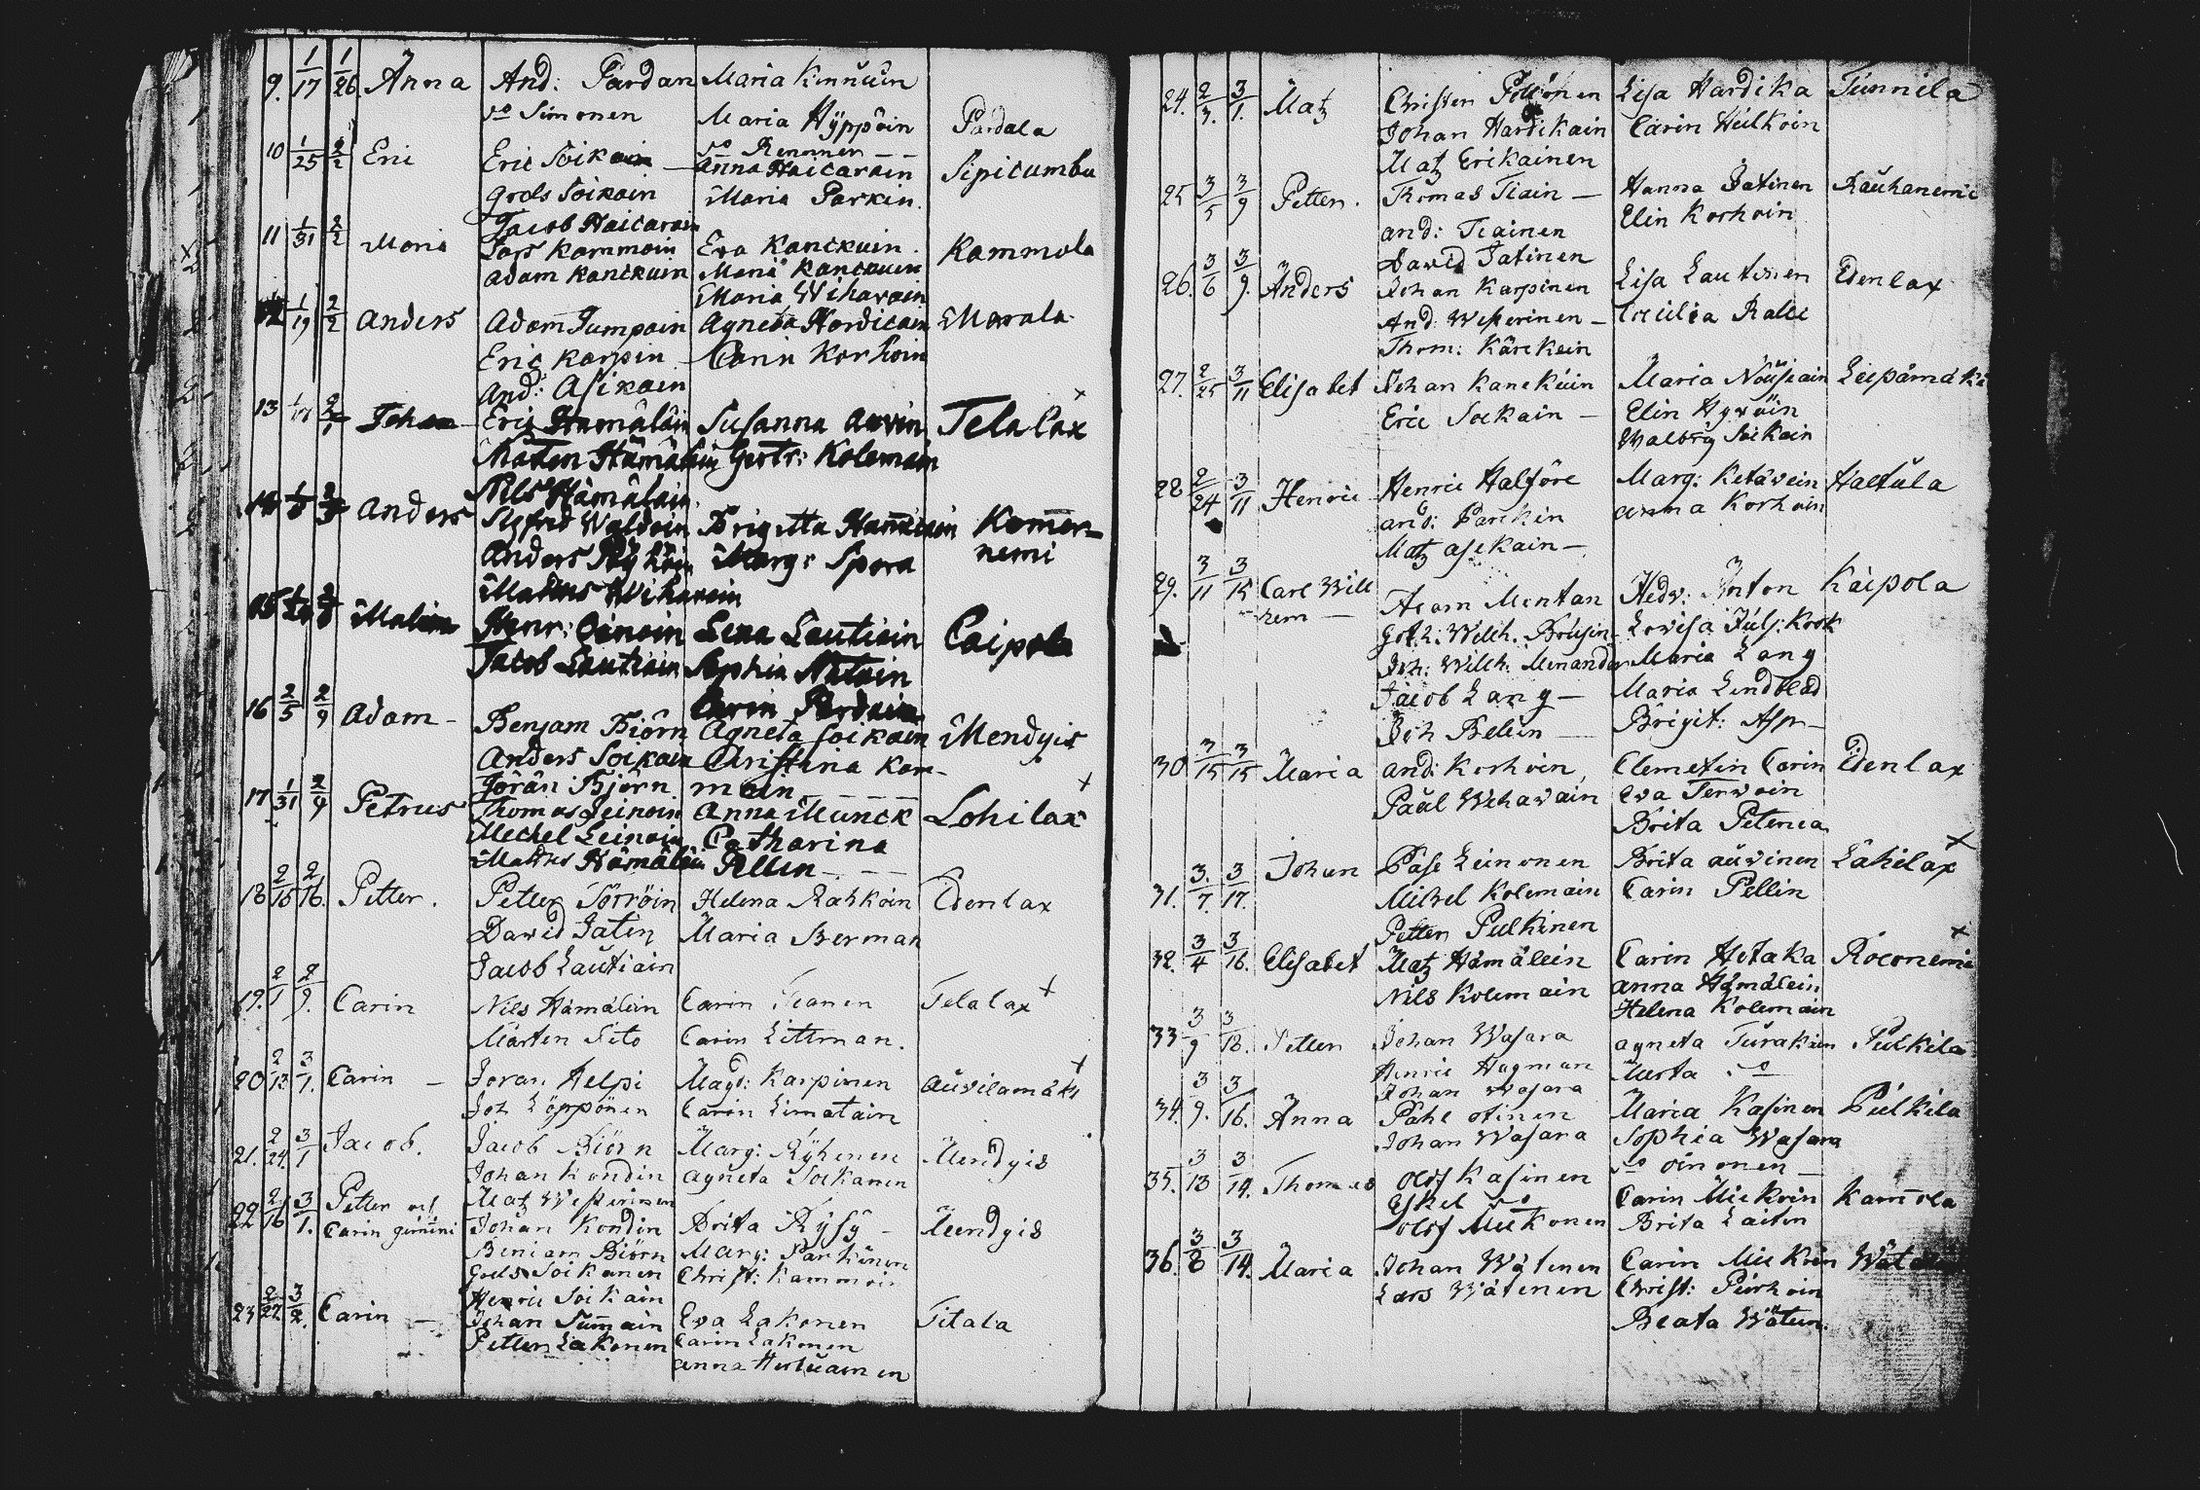 9. 1/17 1/26. Anna And: Pardan Maria Kinnuin
so Simonen Maria Hÿppöin Pardala
10 1/25 2/2 Eric Eric Soikain — so Renner — —
Anna Haicarain Sipicumbu
Grels Soikain Maria Parkin.
11 1/31 2/2 Maria Jacob Haicarain
Lars Kammoin Eva Kanckuin. Kammola
Adam Kanckuin Maria Kanckuin
Maria Wihavain
1/19 2/2 Anders Adam Tumpain Agneta Hardicain Marala
Eric Karpin — Carin Korhoin
And: Asikain
13 Johan Eric Hämäläin Susanna Auvin Telalax
Mårten Hämäläin Gertr: Kolemain
Nils Hämäläin
14 Anders Sigfred Waldoin Brigitta Kamer=
Anders Rÿhöin Marg: Spora nemi
Matths Wihavain
15 Malin Henr: Oinoin Lena Lautiain Caipola
Jacob Lautiain Sophia Natain
Carin Pardain
16 2/5 2/9 Adam — Benjam Biörn Agneta Soikain Mendyis
Anders Soikain Christina Kam-
Jöran Björn moin
17 1/31 2/9 Petrus Thomas Leinoin Anna Munck Lohilax
Michel Leinoin Catharina
Matths Hämäläin Pellin
18 2/15 2/16. Petter. Petter Törröin Helena Rahkoin Edenlax
David Jatin Maria Berman
Jacob Lautiain
19. 2/1 2/9. Carin Nils Hämälein Carin Telalax
Mårten Tito Carin Littman.
20 2/13 3/1. Carin — Joran Kelpi Magd: Karpinen Auvilamäki
Joh Löppönen Carin Limatain
21. 2/24. 3/1 Jacob. Jacob Biörn Marg: Rÿhenen Mendyis
Johan Kondin Agneta Soikanen
Matz Westerinen
22 2/16 3/1. Petter och
Carin gemini Johan Kondin Brita Rÿsÿ — Mendyis
Beniam Biörn Marg: Parkinen
Grels Soikanen Christ: Kammoin
Henric Soikain
23 2/27. 3/2. Carin — Johan Tumain Eva Lakonen Titala
Petter Lakonen Carin Lakonen
Anna
24. 2/3. 3/1. Matz Christer Lisa Hardika Tunnila
Johan Hardikain Carin Hulkoin
Matz Erikainen
25 3/5 3/9 Petter. Thomas Tiain — Hanna Jatinen Rauhanemi
And: Tiainen Elin Korhoin
David Jatinen
26. 3/6 3/9. Anders Johan Karpinen Lisa Lautinen Edenlax
And: Westerinen — Cecilia Ralle
Thom: Kärckein
27. 2/25 3/11 Elisabet Johan Kanckuin Maria Nousiain Leipämäki
Eric Soikain — Elin Hyvöin
Walborg Soikain
28 2/24 3/11 Henric Henric Halfåre Marg: Ketävein Haetula
And: Parckin Anna Korhoin
Matz Asikain —
29. 3/11 3/15 Carl Wilh
rem — Adam Montan Hedv: Anton Kaipola
Goth: Wilh. Brusin Lovisa Julj: Krok
Joh: Wilh: Menander Maria Lang
Jacob Lang — Maria Lindblad
Joh Belin — Brigit: Asp —
30 3/15 3/15 Maria And: Korhoin, Clemetin Carin Edenlax
Paul Wihavain Eva Tervoin
Brita Peterica
31. 3/7. 3/17. Johan Påse Leinonen Brita Auvinen Lahilax
Mikel Kolemain Carin Pellin
Petter Pulkinen
32. 3/4 3/16. Elisabet Matz Hämälein Carin Hotaka Roconemi
Nils Kolemain Anna Hämälein
Helena Kolemain
33 3/9 3/18. Petter Johan Wasara Agneta Turakain Pulkila
Henric Hagman Merta so
Johan Wasara
34. 3/9. 3/16. Anna Påhl Otinen Maria Kasinen Pulkila
Johan Wasara Sophia Wasara
so Oinonen —
35. 3/13 3/14. Thomas Olof Kasinen Carin Mickoin Kamola
Eskel so
Olof Mickonen Brita Laiten
36. 3/8 3/14. Maria Johan Wätenen Carin Mickoin
Lars Wätenen Christ: Purhoin
Beata Wäten.